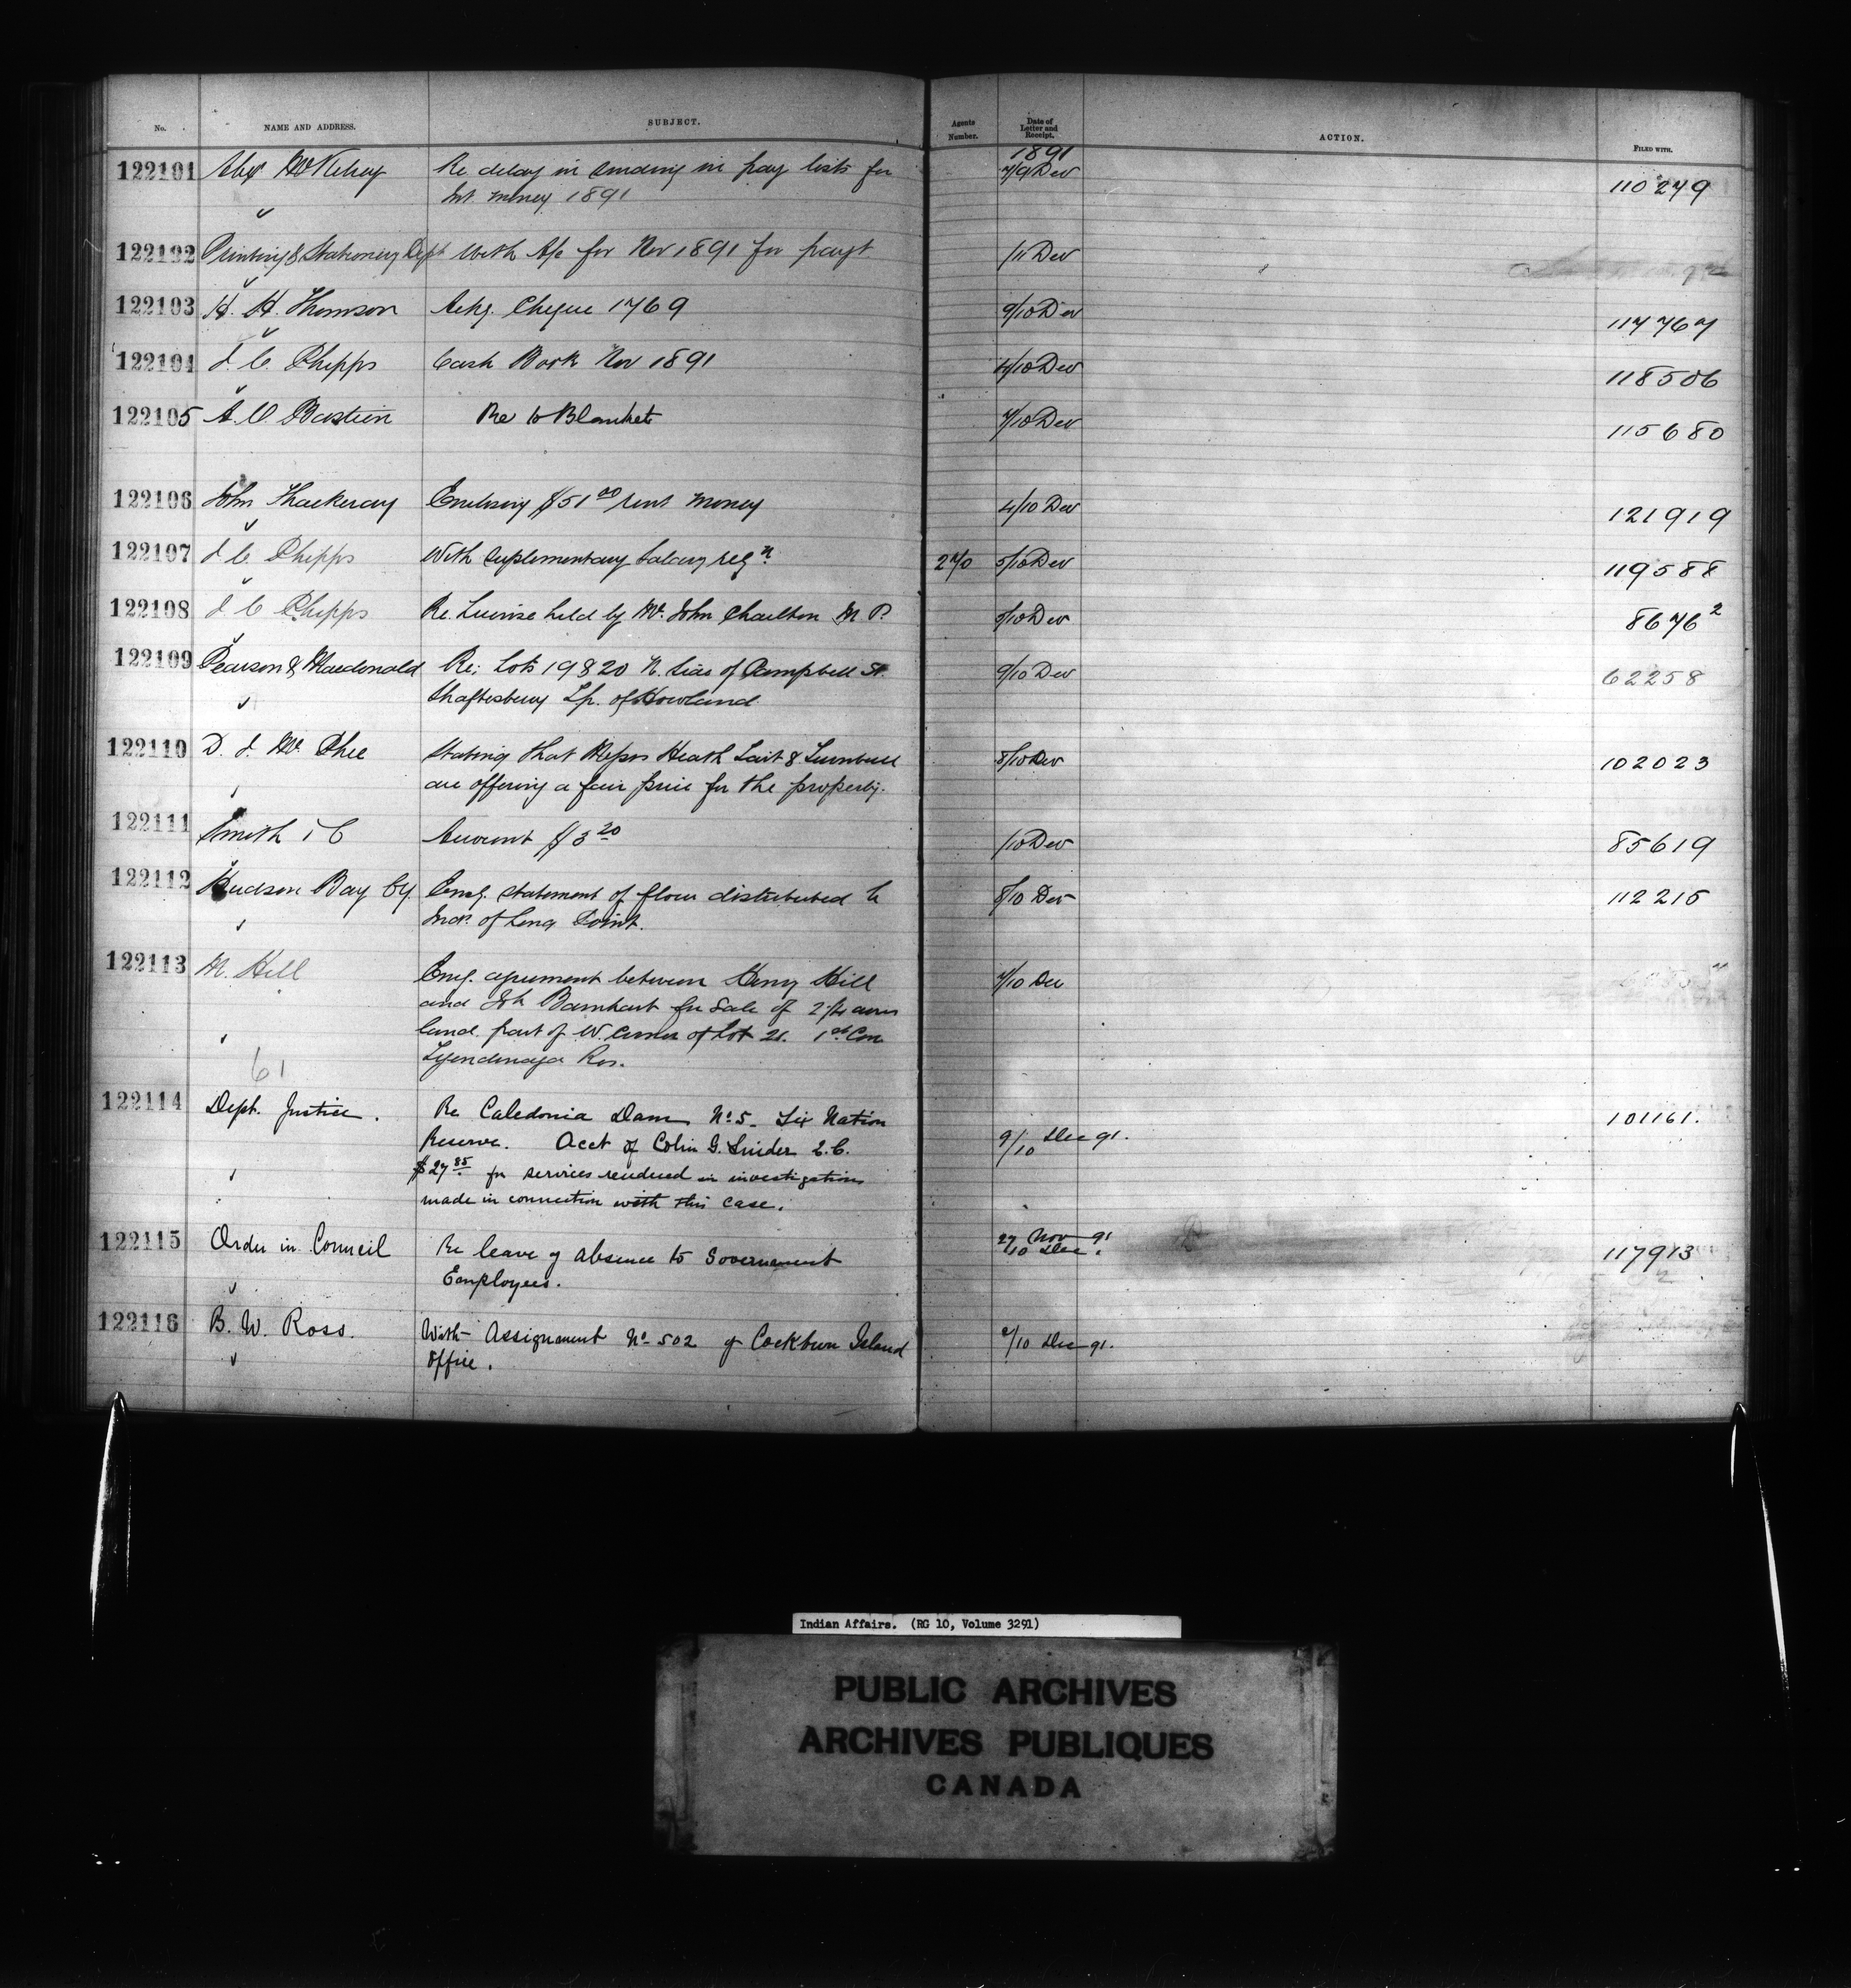 No. NAME AND ADDRESS. SUBJECT. Agents Number. Date of Letter and Receipt. ACTION. FILED WITH.
1891
122101 Alex McKelvey Re delay in sending in pay lists for 7/9 Dec 110249
Int. money 1891
122102 Printing & Stationery Dept With A/c for Nov 1891 for payt /11 Dec
122103 H. H. Thomson Ackg. Cheque 1769 9/10 Dec 117767
122104 J. C. Phipps Cash Book Nov 1891 4/10 Dec 118506
122105 A. O. Bastien Re to Blankets 7/10 Dec 115680
122106 John Thackeray Enclosing $51 00 rent money 4/10 Dec 121919
122107 J. C. Phipps With suplementary Salary reqn. 270 5/10 Dec 119588
122108 J. C. Phipps Re. License held by Mr. John Charlton M. P. /10 Dec 8676 2
122109 Pearson & Macdonald Re; Lots 19 & 20 N. Side of Campbell St. 9/10 Dec 62258
Shaftesbury Tp. of Howland
122110 D. J. McPhee Stating that Messrs Heath Tait & Turnbull 8/10 Dec 102023
are offering a fair price for the property.
122111 Smith Account $3 20 /10 Dec 85619
122112 Hudson Bay Cy. Encl. statement of flour distributed to 8/10 Dec 112215
Inds. of Long Point.
122113 M. Hill Encl. agreement between Henry Hill 7/10 Dec
and Jh Barnhart for sale of 2 1/4 acres
land part of W. corner of Lot 21. 1st Con
Tyendinaga Res.
61
122114 Dept. Justice. Re Caledonia Dam No. 5. Six Nation 101161.
Reserve. Acct of Colin G. Snider Q.C. 9/10 Dec 91.
$27 85 for services rendered in investigations
made in connection with this case.
122115 Order in Council Re leave of absence to Government 27 Nov 91 /10 Dec. 117913
Employees. 2
122116 B. W. Ross. With Assignment No 502 of Cockburn Island 2/10 Dec 91.
Office.
Indian Affairs. (RG 10, Volume 3291)
PUBLIC ARCHIVES
ARCHIVES PUBLIQUES
CANADA